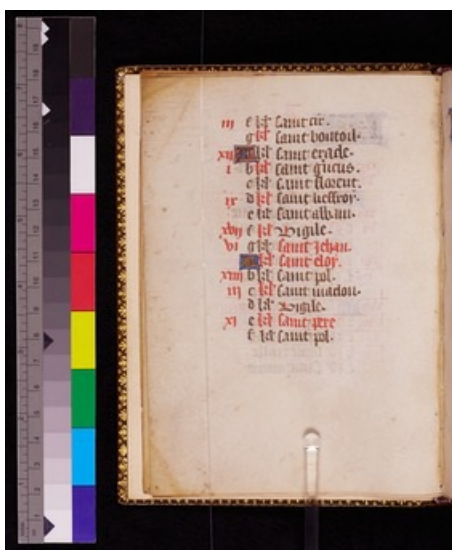 iii kl' saint cir.
g kl' saint boutoil.
xii A kl' saint eracle.
i b kl' saint
c kl' saint florent.
ix d kl' saint lieffroy.
e kl' saint alban.
xvii f kl' Vigile.
vi g kl' saint Jehan.
A kl' saint eloy.
xiiii b kl' saint pol.
iii c kl' saint maclou.
d kl' Vigile.
xi e kl' saint pere
f kl' saint pol.